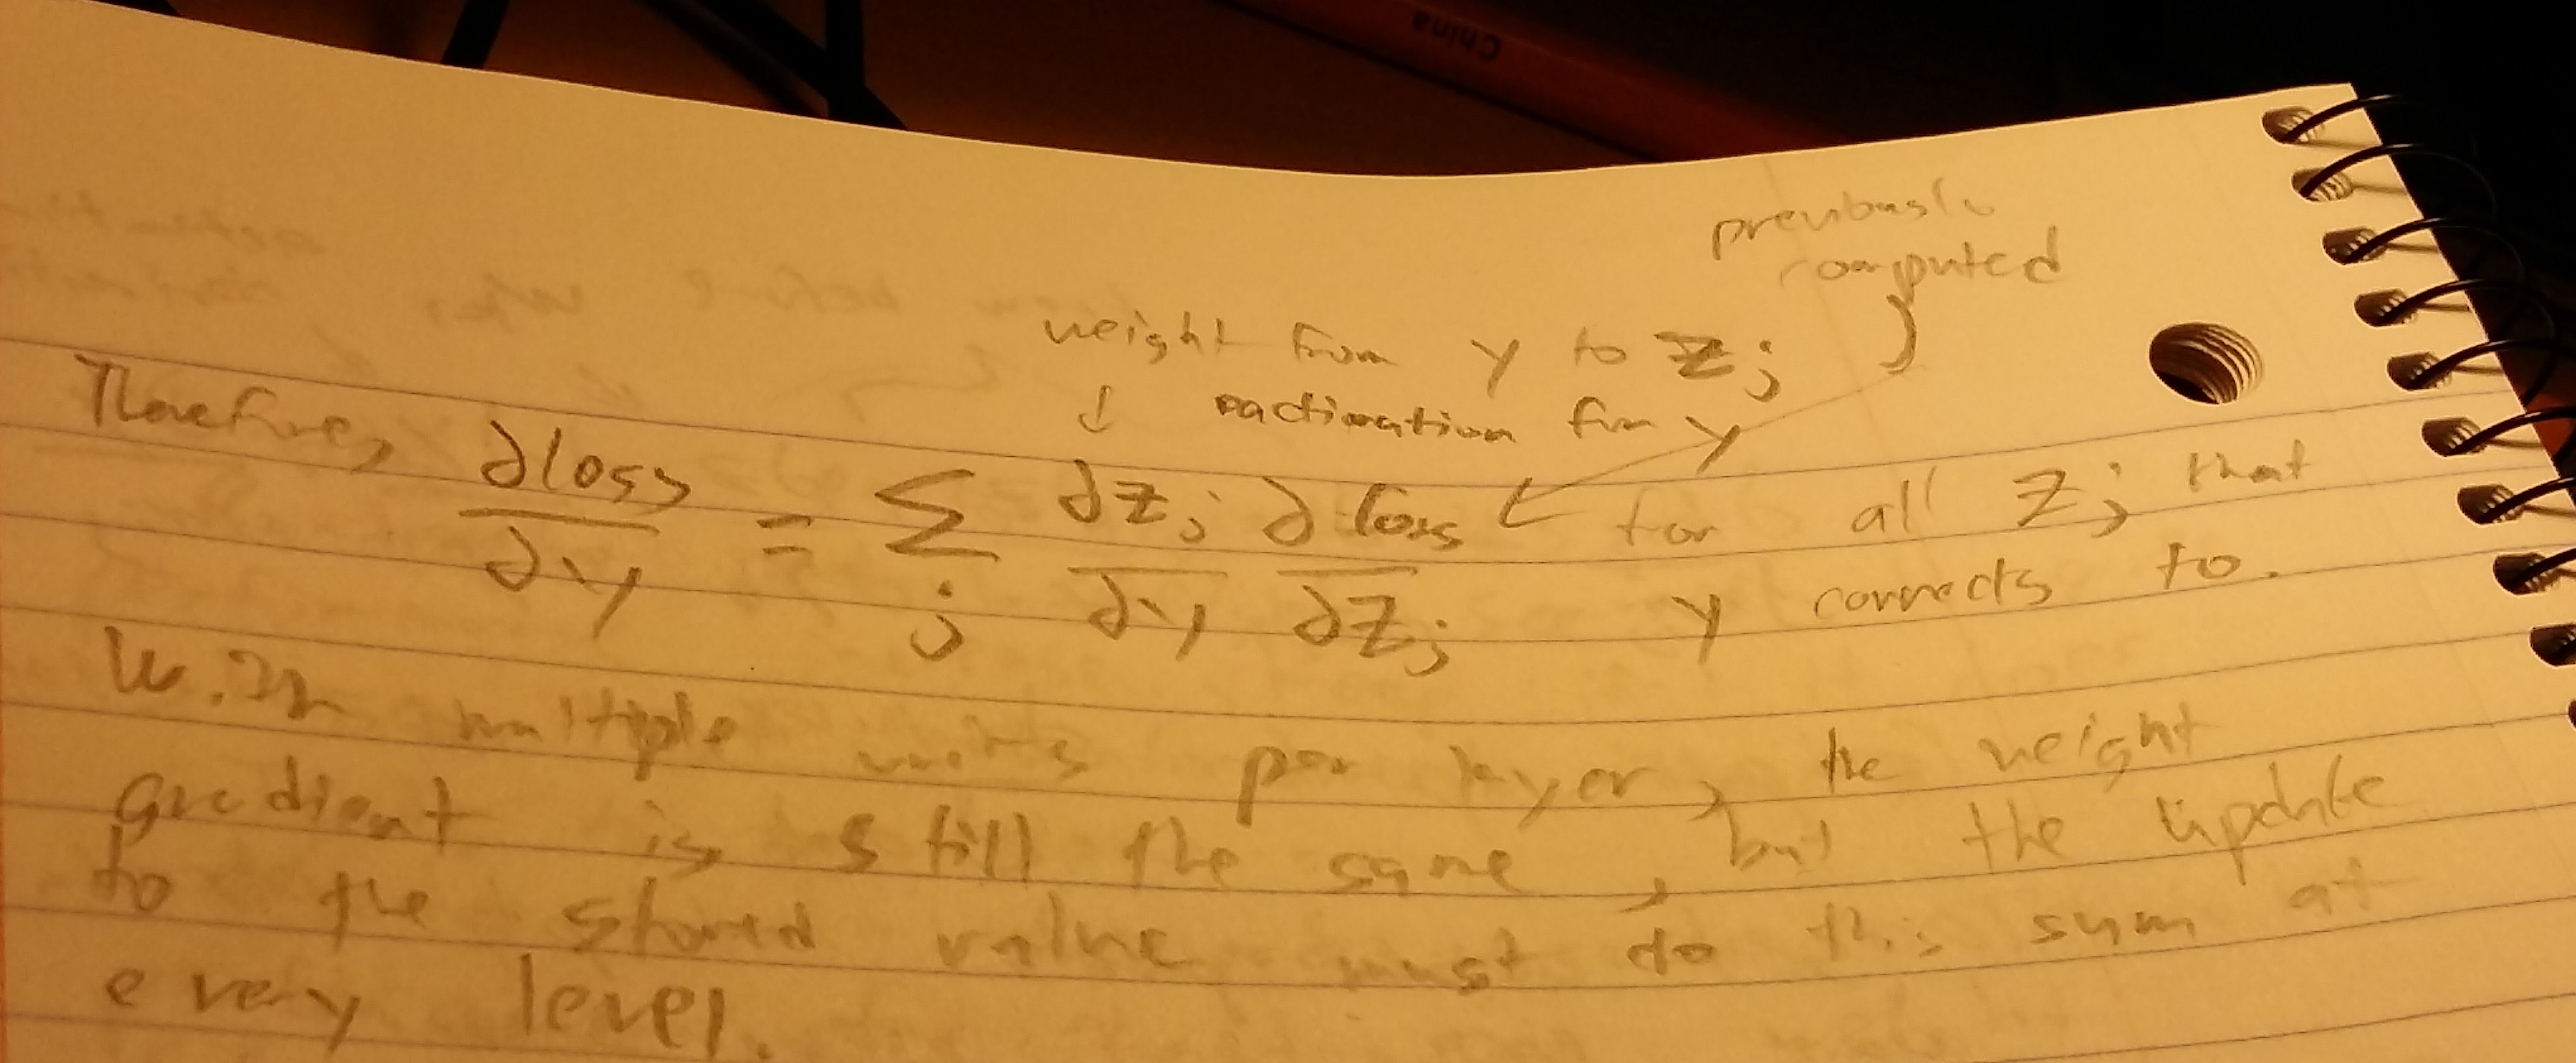 China
previously
computed
weight from y to zj
↓ activation fun y
Therefore, ∂loss/∂y = Σj ∂zj/∂y ∂loss/∂zj ← for all zj that
y connects to.
With multiple units per layer, the weight
gradient is still the same, but the update
to the stored value must do this sum at
every level.